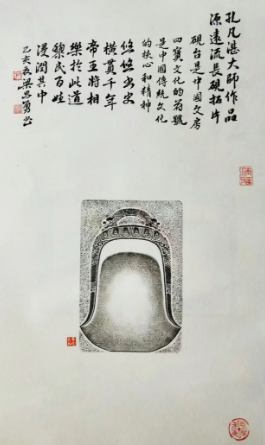 孔凡湛大師作品
源遠流長硯拓片
硯台是中國文房
四寶文化的翁號
是中國傳統文化
的核心和精神
悠悠出史
橫貫千年
帝王將相
樂於此道
黎民百姓
浸潤其中
乙亥長梁忠勇